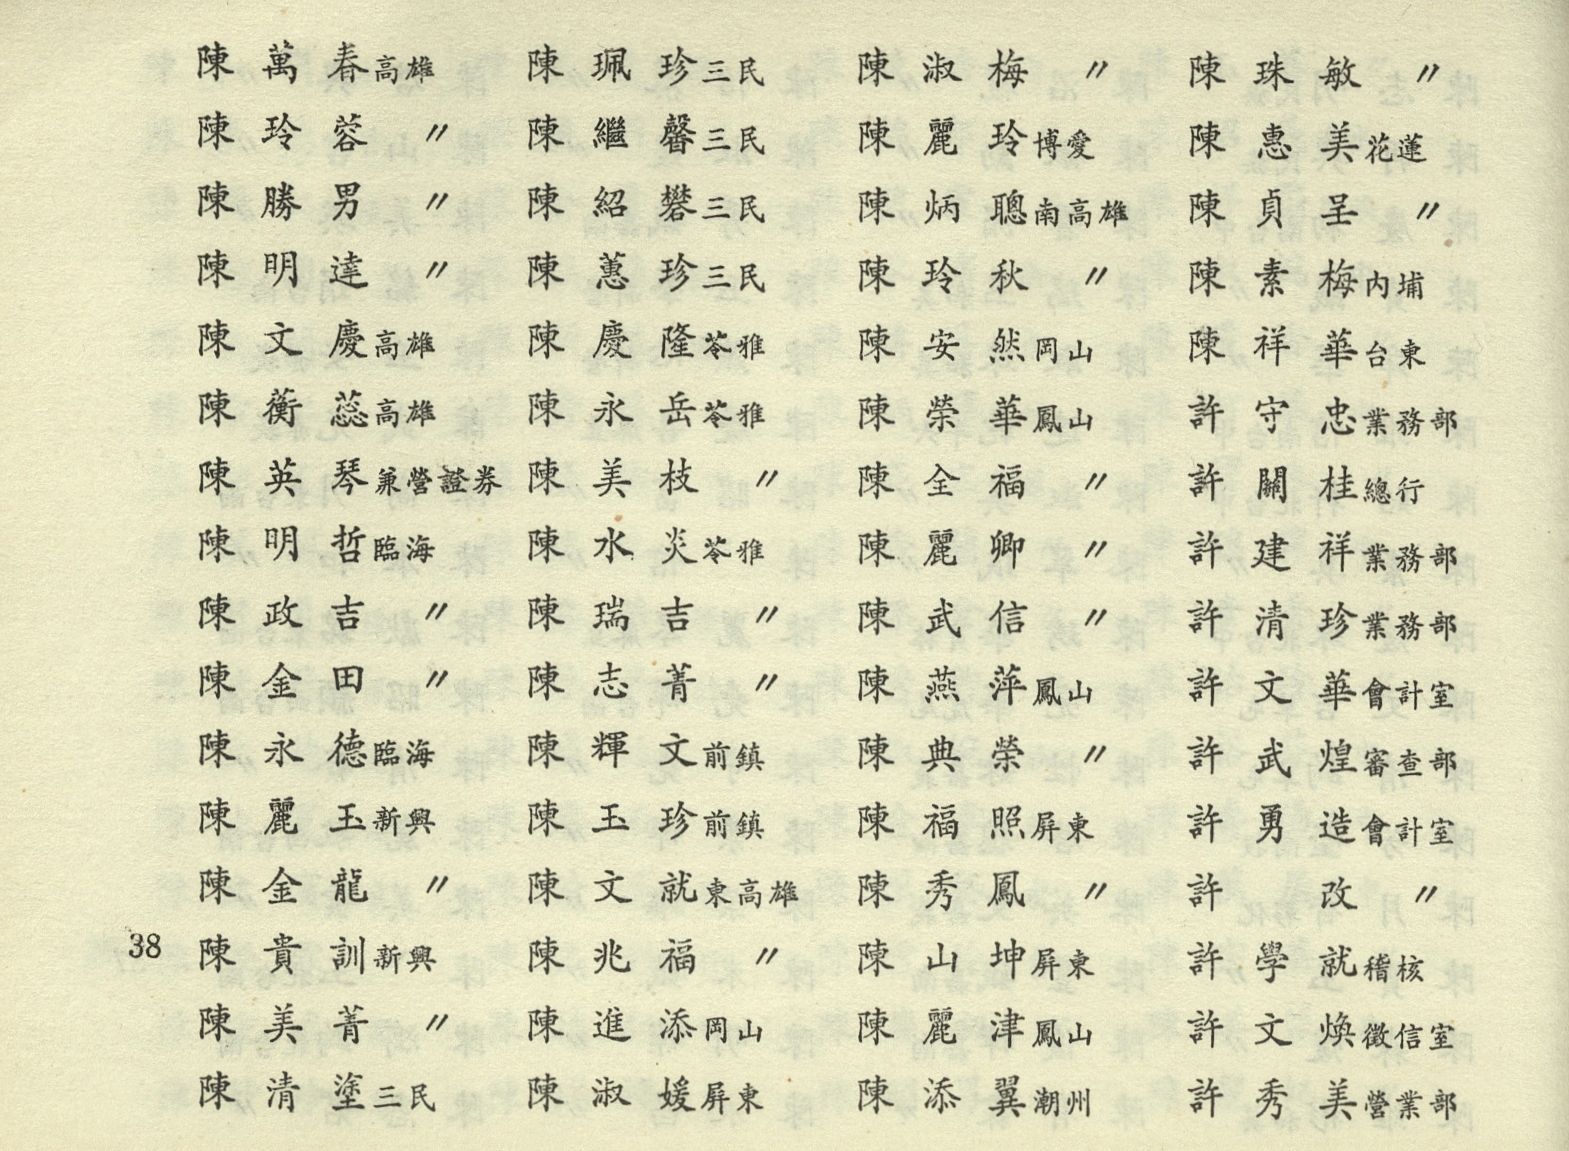 陳萬春高雄 陳珮珍三民 陳淑梅 〃 陳珠敏 〃
陳玲蓉 〃 陳繼馨三民 陳麗玲博愛 陳惠美花蓮
陳勝男 〃 陳紹礬三民 陳炳聰南高雄 陳貞呈 〃
陳明達 〃 陳蕙珍三民 陳玲秋 〃 陳素梅內埔
陳文慶高雄 陳慶隆苓雅 陳安然岡山 陳祥華台東
陳蘅蕊高雄 陳永岳苓雅 陳榮華鳳山 許守忠業務部
陳英琴兼營證券 陳美枝 〃 陳全福 〃 許關桂總行
陳明哲臨海 陳水炎苓雅 陳麗卿 〃 許建祥業務部
陳政吉 〃 陳瑞吉 〃 陳武信 〃 許清珍業務部
陳金田 〃 陳志菁 〃 陳燕萍鳳山 許文華會計室
陳永德臨海 陳輝文前鎮 陳典榮 〃 許武煌審查部
陳麗玉新興 陳玉珍前鎮 陳福照屏東 許勇造會計室
陳金龍 〃 陳文就東高雄 陳秀鳳 〃 許改 〃
陳貴訓新興 陳兆福 〃 陳山坤屏東 許學就稽核
陳美菁 〃 陳進添岡山 陳麗津鳳山 許文煥徵信室
陳清塗三民 陳淑媛屏東 陳添翼潮州 許秀美營業部
38